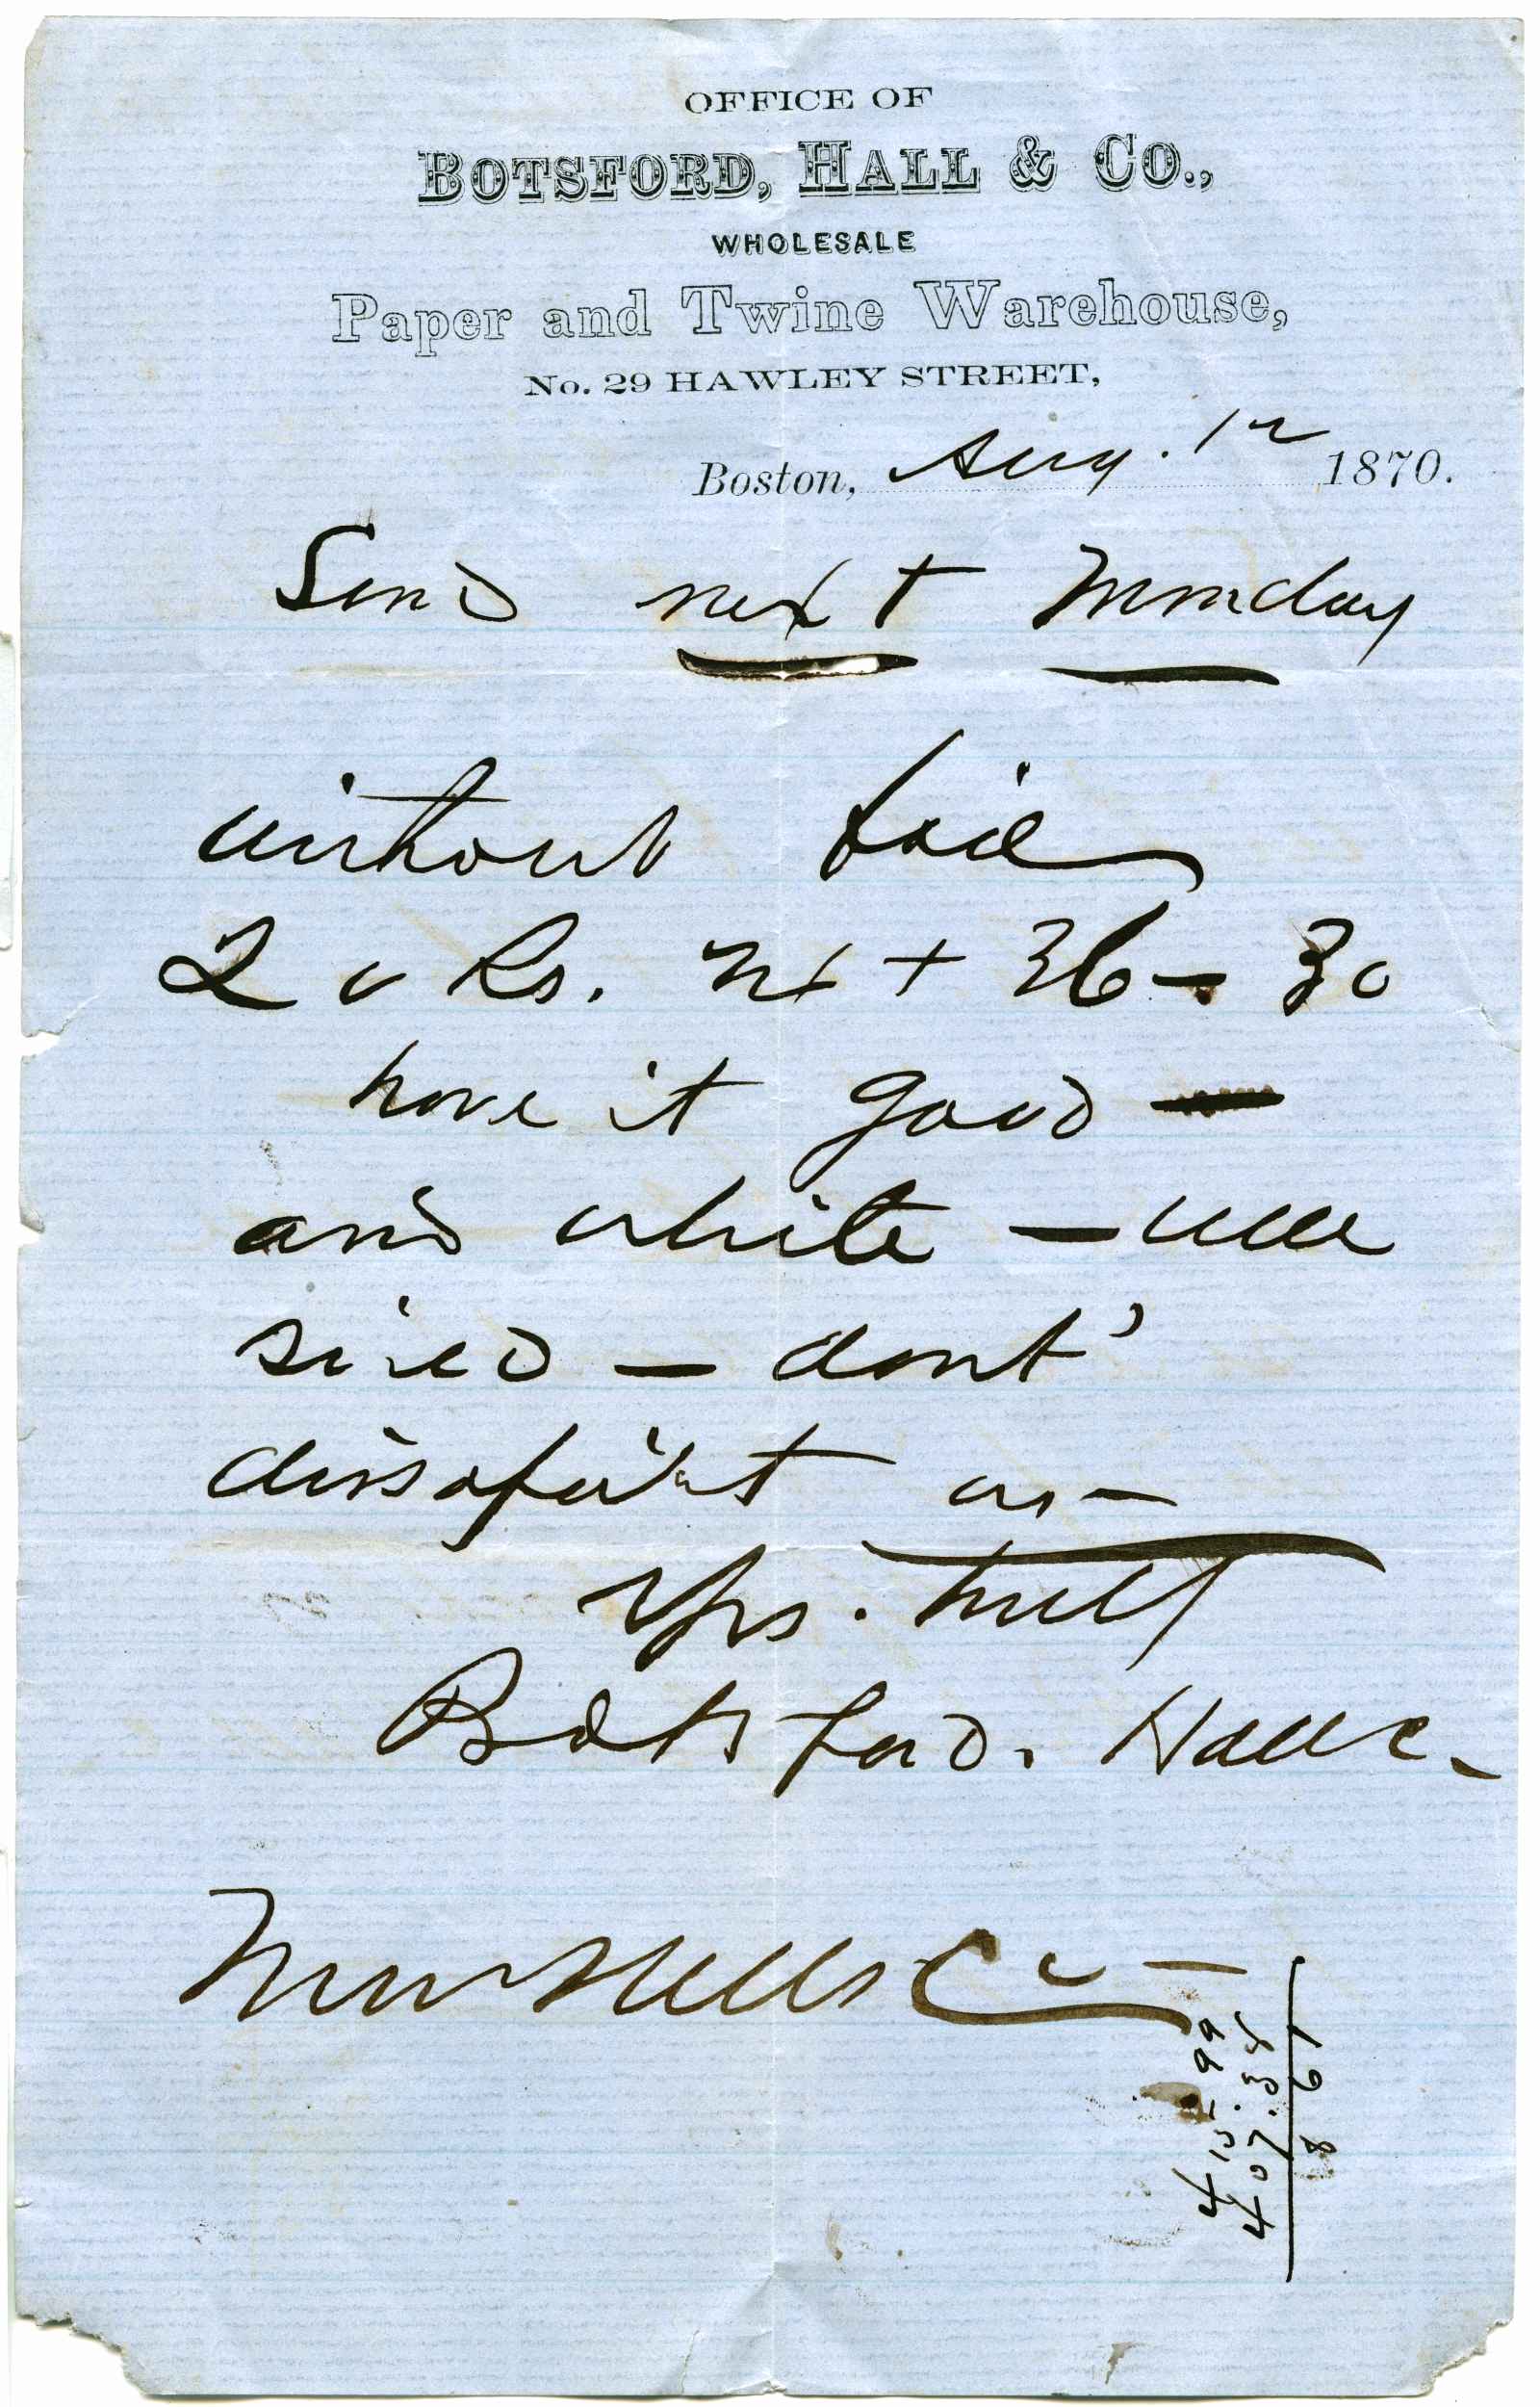 OFFICE OF
BOTSFORD, HALL & CO.,
WHOLESALE
Paper and Twine Warehouse,
No. 29 HAWLEY STREET,
Boston, Aug. 12 1870.
Send next Monday
without fail
20 Rs. 24 + 36 - 30
have it good —
and white — well
sized — dont'
dissapoint us —
Yrs. truly
Botsford. Hall &
415.99
407.38
8 61